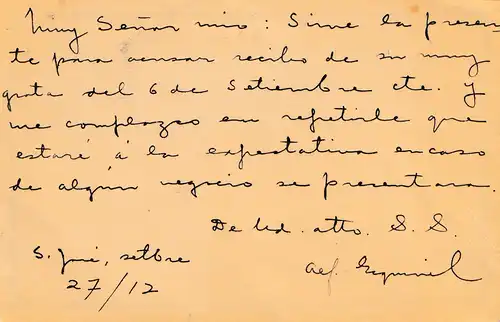 Muy Señor mio: Sirve la presen-
te para acusar recibo de su muy
grata del 6 de Setiembre cte. Y
me complazco en repetirle que
estaré á la expectativa en caso
de algún negocio se presentara.
De Ud. atto. S. S.
S. José, setbre
27/12
Esquivel